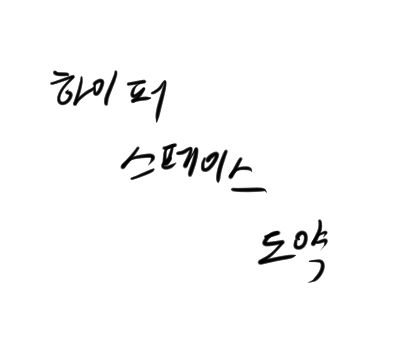 하이퍼
스페이스
도약